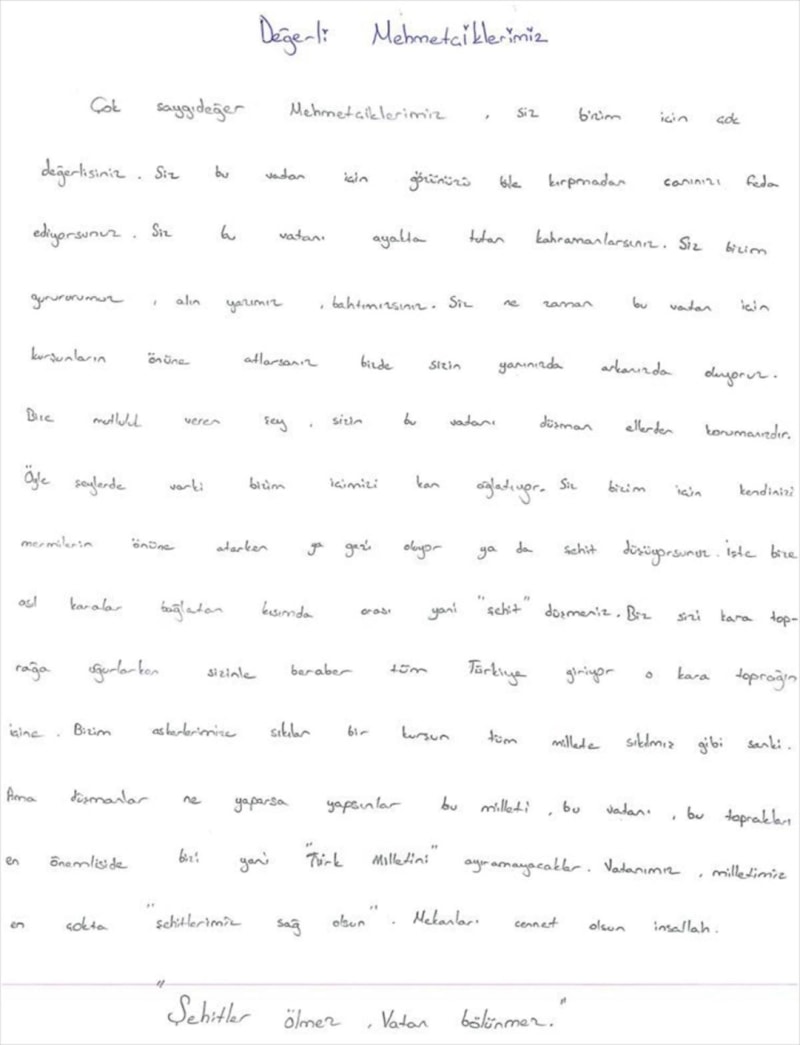 Değerli Mehmetciklerimiz
Çok saygıdeğer Mehmetciklerimiz , siz bizim icin cok
değerlisiniz . Siz bu vadan icin gözünüzü bile kırpmadan canınızı feda
ediyorsunuz . Siz bu vatanı ayakta tutan kahramanlarsınız . Siz bizim
gururumuz , alın yazımız , bahtımızsınız . Siz ne zaman bu vadan icin
kursunların önüne atlarsanız bizde sizin yanınızda arkanızda oluyoruz .
Bize mutluluk veren sey , sizin bu vadanı düsman ellerden korumanızdır.
Öyle seylerde varki bizim icimizi kan ağlatıyor. Siz bizim icin kendinizi
mermilerin önüne atarken ya gazi oluyor ya da sehit düsüyorsunuz . İste bize
asıl karalar bağlatan kısımda orası yani "sehit" düsmeniz . Biz sizi kara top-
rağa uğurlarken sizinle beraber tüm Türkiye giriyor o kara toprağın
icine . Bizim askerlerimize sıkılan bir kursun tüm millete sıkılmız gibi sanki .
Ama düsmanlar ne yaparsa yapsınlar bu milleti , bu vadanı , bu toprakları
en önemliside bizi yani "Türk Milletini" ayıramayacaklar . Vadanımız , milletimiz
en cokta "sehitlerimiz sağ olsun" . Mekanları cennet olsun insallah .
"Şehitler ölmez , Vatan bölünmez."